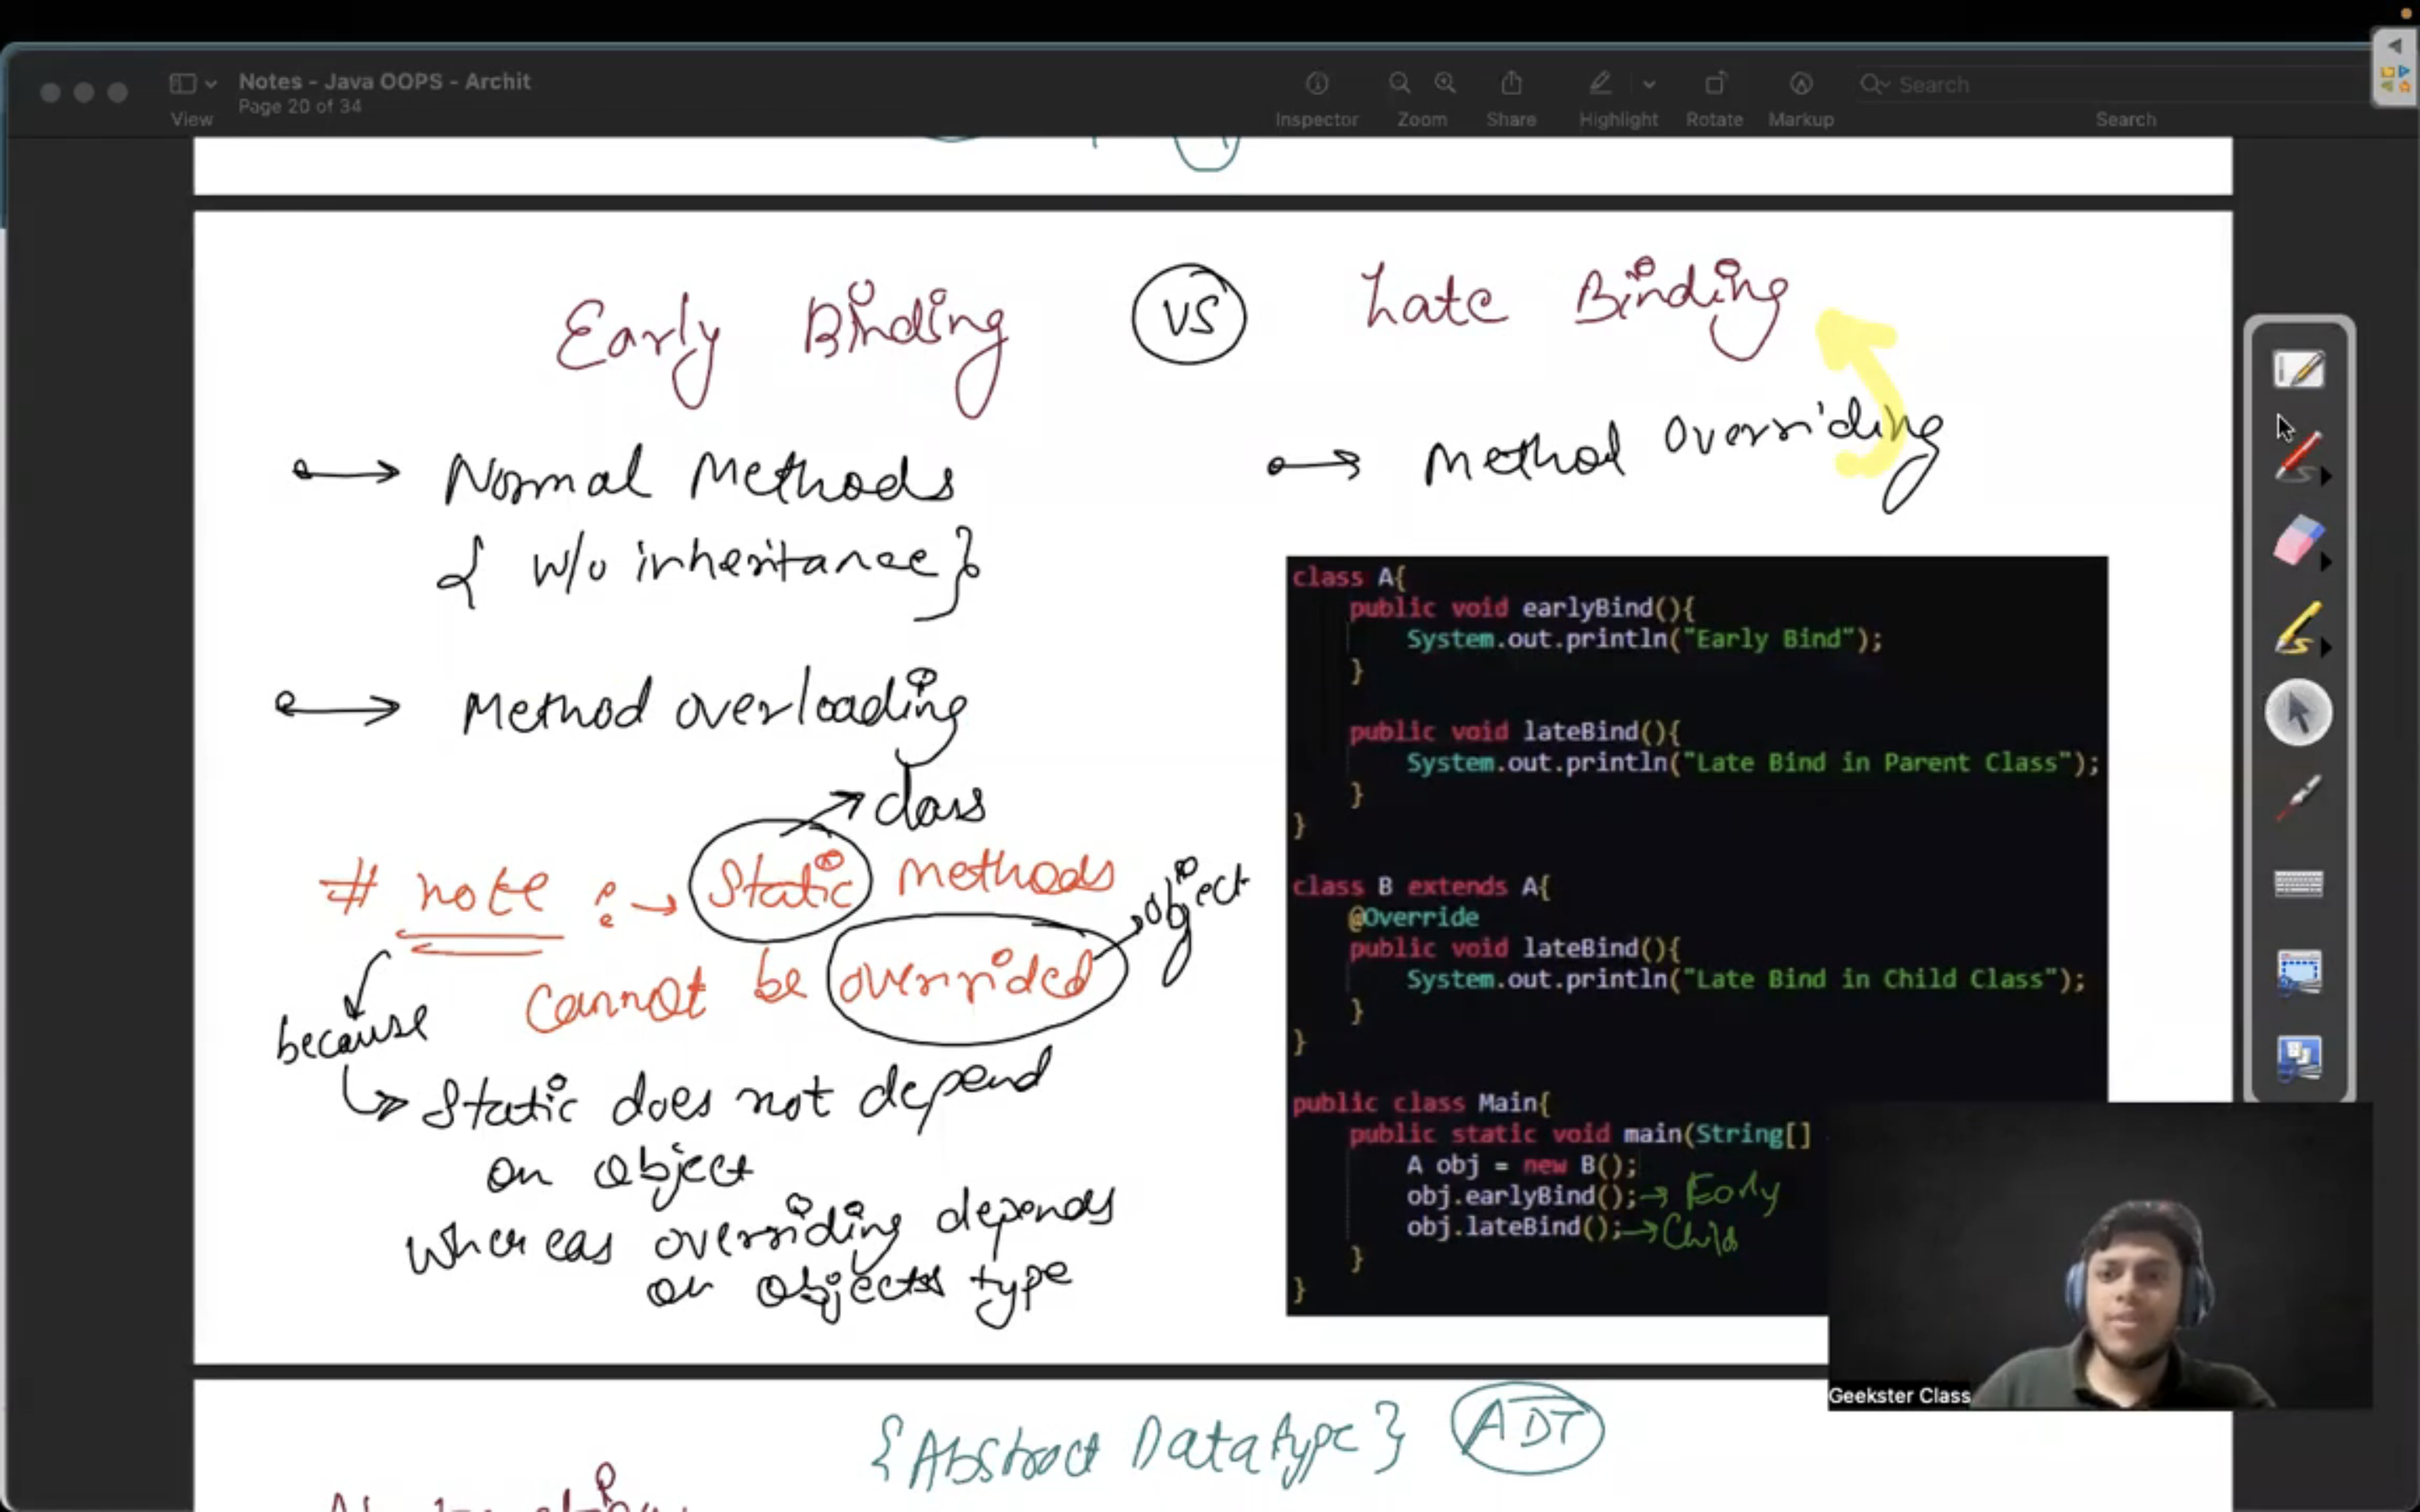 Notes - Java OOPS - Archit
Page 20 of 34
View
Inspector
Zoom
Share
Highlight
Rotate
Markup
Search
Search
Early Binding VS Late Binding
Normal Methods
{ w/o inheritance }
Method overloading
class
# note : → Static methods
cannot be overrided
object
because
Static does not depend
on object
Whereas overriding depends
on objects type
Method Overriding
class A{
public void earlyBind(){
System.out.println("Early Bind");
}
public void lateBind(){
System.out.println("Late Bind in Parent Class");
}
}
class B extends A{
@Override
public void lateBind(){
System.out.println("Late Bind in Child Class");
}
}
public class Main{
public static void main(String[]
A obj = new B();
obj.earlyBind(); → Early
obj.lateBind(); → Child
}
}
Geekster Class
{Abstract Datatype} ADT